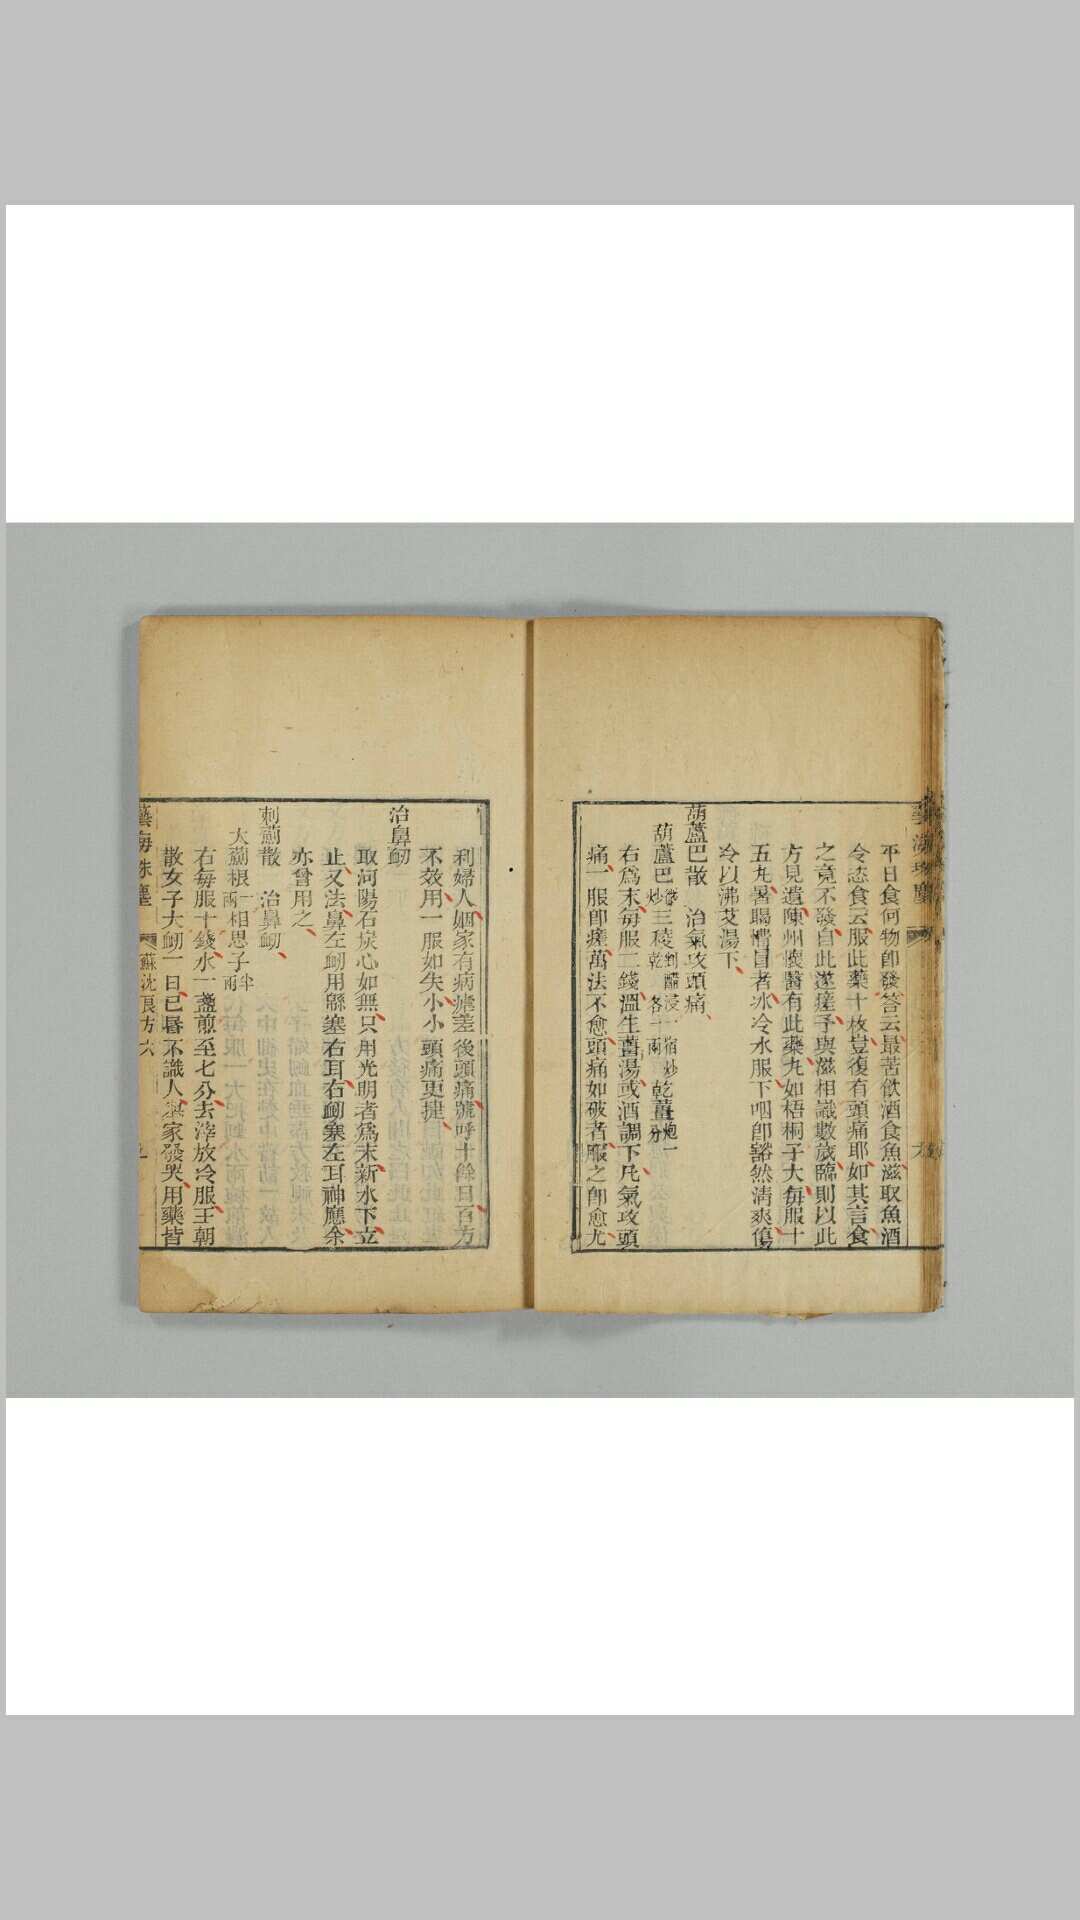 平日食何物卽發答云最苦飲酒食魚滋取魚酒
令恣食云服此藥十枚豈復有頭痛耶如其言食
之竟不發自此遂瘥予與滋相識數歲臨則以此
方見遺陳州懷醫有此藥丸如梧桐子大每服十
五丸暑暍懵冒者冰冷水服下咽卽豁然清爽傷
冷以沸艾湯下
葫蘆巴散 治氣攻頭痛
葫蘆巴微炒三稜剉醋浸一宿炒乾各一兩乾薑炮一分
右爲末每服二錢溫生薑湯或酒調下凡氣攻頭
痛一服卽瘥萬法不愈頭痛如破者服之卽愈尤
利婦人姻家有病瘧差後頭痛號呼十餘日百方
不效用一服如失小小頭痛更捷
治鼻衂
取河陽石炭心如無只用光明者爲末新水下立
止又法鼻左衂用緜塞右耳右衂塞左耳神應余
亦曾用之
刺薊散 治鼻衂
大薊根一兩相思子半兩
右每服十錢水一盞煎至七分去滓放冷服王朝
散女子大衂一日已昬不識人舉家發哭用藥皆
藝海珠塵 蘇沈良方六